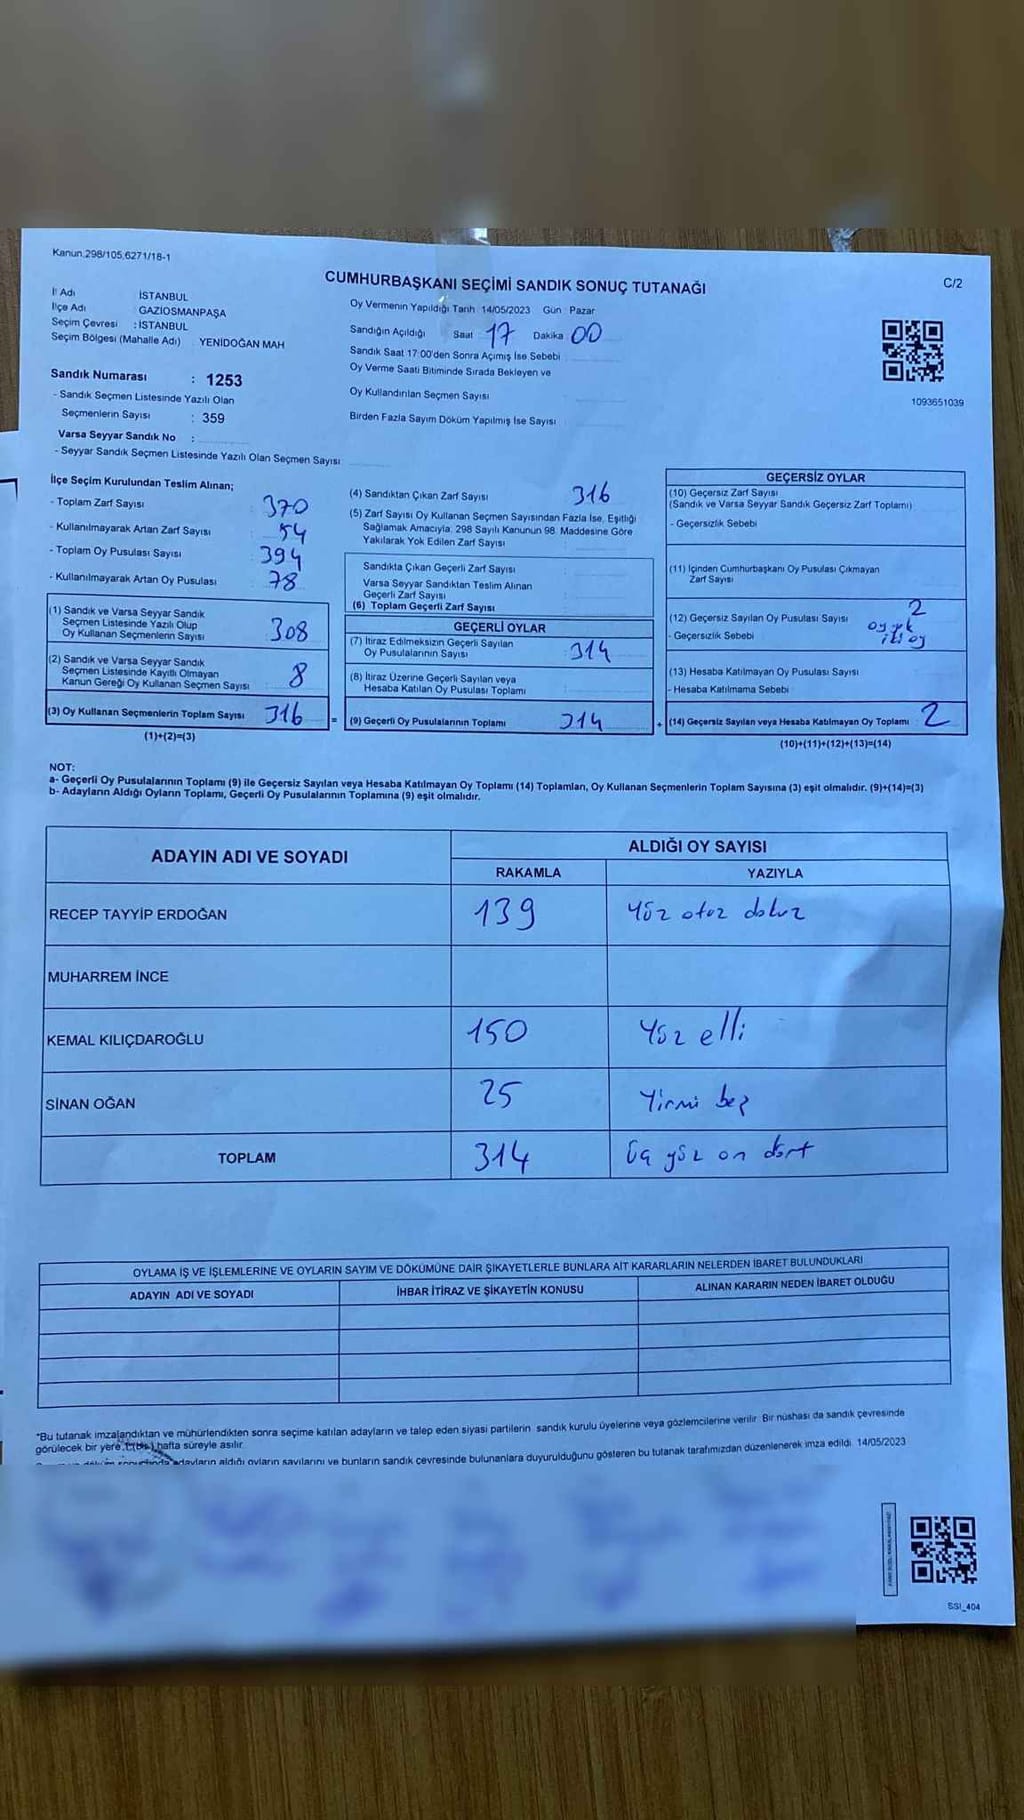 Kanun.298/105,6271/18-1
CUMHURBAŞKANI SEÇİMİ SANDIK SONUÇ TUTANAĞI
C/2
İl Adı İSTANBUL
İlçe Adı GAZİOSMANPAŞA
Seçim Çevresi : İSTANBUL
Seçim Bölgesi (Mahalle Adı) YENİDOĞAN MAH
Sandık Numarası : 1253
- Sandık Seçmen Listesinde Yazılı Olan
Seçmenlerin Sayısı : 359
Varsa Seyyar Sandık No :
- Seyyar Sandık Seçmen Listesinde Yazılı Olan Seçmen Sayısı
Oy Vermenin Yapıldığı Tarih 14/05/2023 Gün Pazar
Sandığın Açıldığı Saat 17 Dakika 00
Sandık Saat 17:00'den Sonra Açımış İse Sebebi
Oy Verme Saati Bitiminde Sırada Bekleyen ve
Oy Kullandırılan Seçmen Sayısı
Birden Fazla Sayım Döküm Yapılmış İse Sayısı
1093651039
İlçe Seçim Kurulundan Teslim Alınan;
- Toplam Zarf Sayısı 370
- Kullanılmayarak Artan Zarf Sayısı 54
- Toplam Oy Pusulası Sayısı 394
- Kullanılmayarak Artan Oy Pusulası 78
(1) Sandık ve Varsa Seyyar Sandık
Seçmen Listesinde Yazılı Olup
Oy Kullanan Seçmenlerin Sayısı 308
(2) Sandık ve Varsa Seyyar Sandık
Seçmen Listesinde Kayıtlı Olmayan
Kanun Gereği Oy Kullanan Seçmen Sayısı 8
(3) Oy Kullanan Seçmenlerin Toplam Sayısı 316 =
(1)+(2)=(3)
(4) Sandıktan Çıkan Zarf Sayısı 316
(5) Zarf Sayısı Oy Kullanan Seçmen Sayısından Fazla İse, Eşitliği
Sağlamak Amacıyla, 298 Sayılı Kanunun 98. Maddesine Göre
Yakılarak Yok Edilen Zarf Sayısı
Sandıkta Çıkan Geçerli Zarf Sayısı
Varsa Seyyar Sandıktan Teslim Alınan
Geçerli Zarf Sayısı
(6) Toplam Geçerli Zarf Sayısı
GEÇERLİ OYLAR
(7) İtiraz Edilmeksizin Geçerli Sayılan
Oy Pusulalarının Sayısı : 314
(8) İtiraz Üzerine Geçerli Sayılan veya
Hesaba Katılan Oy Pusulası Toplamı
(9) Geçerli Oy Pusulalarının Toplamı 314 +
GEÇERSİZ OYLAR
(10) Geçersiz Zarf Sayısı
(Sandık ve Varsa Seyyar Sandık Geçersiz Zarf Toplamı)
- Geçersizlik Sebebi
(11) İçinden Cumhurbaşkanı Oy Pusulası Çıkmayan
Zarf Sayısı
(12) Geçersiz Sayılan Oy Pusulası Sayısı 2
- Geçersizlik Sebebi
(13) Hesaba Katılmayan Oy Pusulası Sayısı
- Hesaba Katılmama Sebebi
(14) Geçersiz Sayılan veya Hesaba Katılmayan Oy Toplamı 2
(10)+(11)+(12)+(13)=(14)
NOT:
a- Geçerli Oy Pusulalarının Toplamı (9) ile Geçersiz Sayılan veya Hesaba Katılmayan Oy Toplamı (14) Toplamları, Oy Kullanan Seçmenlerin Toplam Sayısına (3) eşit olmalıdır. (9)+(14)=(3)
b- Adayların Aldığı Oyların Toplamı, Geçerli Oy Pusulalarının Toplamına (9) eşit olmalıdır.
ADAYIN ADI VE SOYADI ALDIĞI OY SAYISI
RAKAMLA YAZIYLA
RECEP TAYYİP ERDOĞAN 139 Yüz otuz dokuz
MUHARREM İNCE
KEMAL KILIÇDAROĞLU 150 Yüz elli
SİNAN OĞAN 25 Yirmi beş
TOPLAM 314 Üç yüz on dört
OYLAMA İŞ VE İŞLEMLERİNE VE OYLARIN SAYIM VE DÖKÜMÜNE DAİR ŞİKAYETLERLE BUNLARA AİT KARARLARIN NELERDEN İBARET BULUNDUKLARI
ADAYIN ADI VE SOYADI İHBAR İTİRAZ VE ŞİKAYETİN KONUSU ALINAN KARARIN NEDEN İBARET OLDUĞU
*Bu tutanak imzalandıktan ve mühürlendikten sonra seçime katılan adayların ve talep eden siyasi partilerin sandık kurulu üyelerine veya gözlemcilerine verilir. Bir nüshası da sandık çevresinde
görülecek bir yere 1 (bir) hafta süreyle asılır.
adayların aldığı oyların sayılarını ve bunların sandık çevresinde bulunanlara duyurulduğunu gösteren bu tutanak tarafımızdan düzenlenerek imza edildi. 14/05/2023
SSI_404